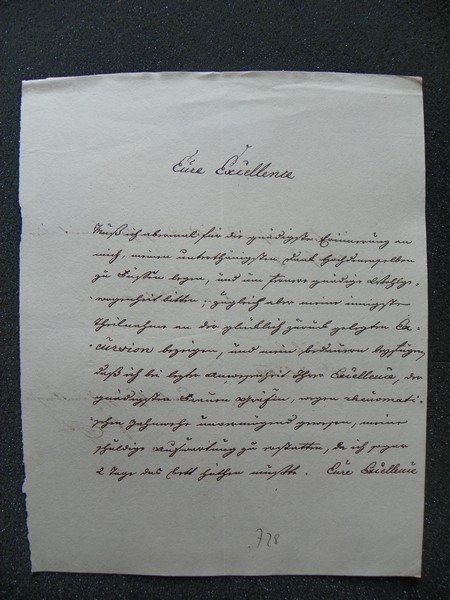 Eure Excellence
Muß ich abermal für die gnädigste Erinnerung an
mich, meinen unterthänigsten Dank Hochdenenselben
zu Füssen legen, und um fernere gnädige
gewogenheit bitten; zugleich aber meine innigste
Theilnahme an der glücklich zurück gelegten Ex-
cursion bezeigen, und mein bedauern beyfügen,
daß ich bei lezter Anwesenheit Ihrer Excellence, der
gnädigsten Frauen Gräfin, wegen rheumati-
schen Zahnwehe unvermögend gewesen, meine
schuldige Aufwartung zu erstatten, da ich sogar
2 Tage das bett hüthen mußte. Eure Excellence
728